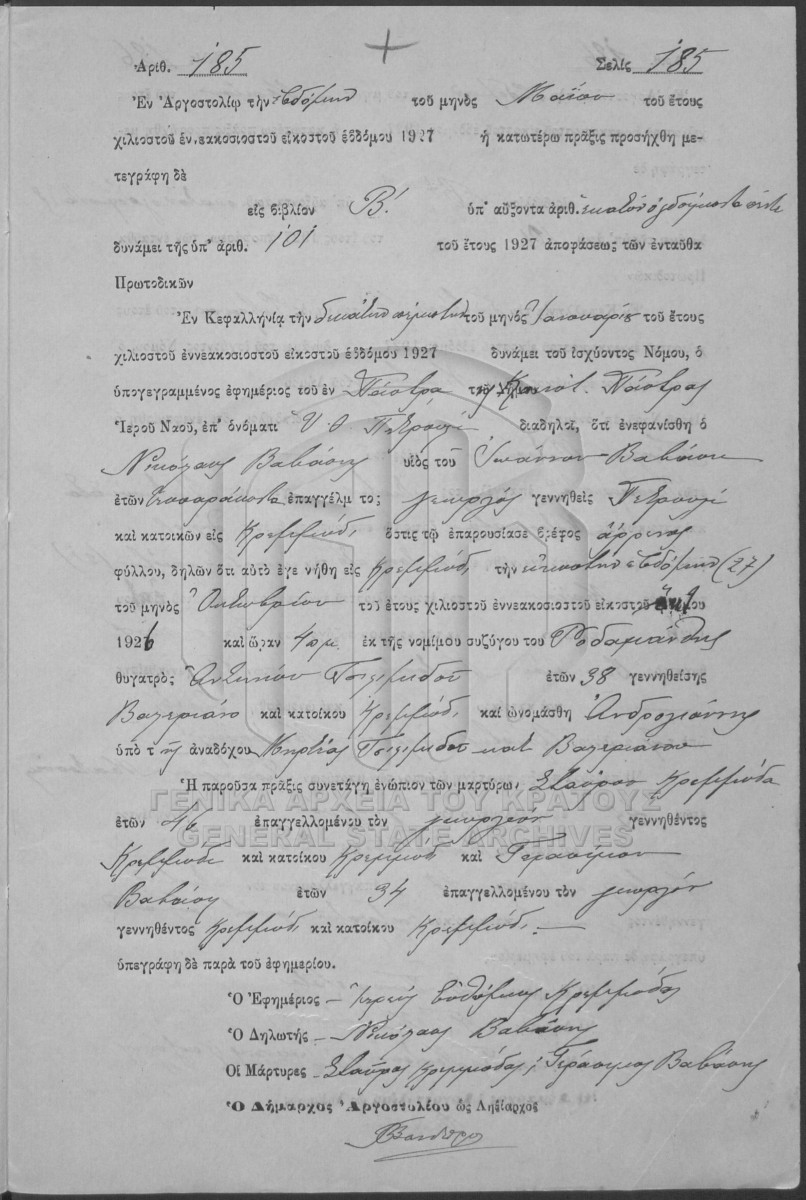 Ἀριθ. 185 Σελὶς 185
Ἐν Ἀργοστολίῳ τὴν ἑβδόμην τοῦ μηνὸς Μαΐου τοῦ ἔτους
χιλιοστοῦ ἐννεακοσιοστοῦ εἰκοστοῦ ἑβδόμου 1927 ἡ κατωτέρω πρᾶξις προσήχθη με-
τεγράφη δὲ
εἰς βιβλίον Β! ὑπ' αὔξοντα ἀριθ. ἑκατὸν ὀγδοήκοντα πέντε
δυνάμει τῆς ὑπ' ἀριθ. 101 τοῦ ἔτους 1927 ἀποφάσεως τῶν ἐνταῦθα
Πρωτοδικῶν
Ἐν Κεφαλληνίᾳ τὴν δεκάτην πέμπτην τοῦ μηνὸς Ἰανουαρίου τοῦ ἔτους
χιλιοστοῦ ἐννεακοσιοστοῦ εἰκοστοῦ ἑβδόμου 1927 δυνάμει τοῦ ἰσχύοντος Νόμου, ὁ
ὑπογεγραμμένος ἐφημέριος τοῦ ἐν Πάστρα Κοινότ. Πάστρας
Ἱεροῦ Ναοῦ, ἐπ' ὀνόματι Υ Θ διαδηλοῖ, ὅτι ἐνεφανίσθη ὁ
Νικόλαος Βαβάσης υἱὸς τοῦ Ἰωάννου Βαβάση
ἐτῶν τεσσαράκοντα ἐπαγγέλματος γεωργὸς γεννηθεὶς
καὶ κατοικῶν εἰς Κρεμμύδι ὅστις τῷ ἐπαρουσίασε βρέφος ἄρρενος
φύλλου, δηλῶν ὅτι αὐτὸ ἐγεννήθη εἰς Κρεμμύδι τὴν εἰκοστὴν ἑβδόμην (27)
τοῦ μηνὸς Ὀκτωβρίου τοῦ ἔτους χιλιοστοῦ ἐννεακοσιοστοῦ εἰκοστοῦ
1926 καὶ ὥραν 4 π.μ. ἐκ τῆς νομίμου συζύγου του Ροδαμάνθης
θυγατρὸς ἐτῶν 38 γεννηθείσης
Βαλεριάνο καὶ κατοίκου Κρεμμύδι καὶ ὠνομάσθη Ἀνδρογιάννης
ὑπὸ τῆς ἀναδόχου Βαλεριάνου
Ἡ παροῦσα πρᾶξις συνετάγη ἐνώπιον τῶν μαρτύρων Σταύρου Κρεμμύδα
ΓΕΝΙΚΑ ΑΡΧΕΙΑ ΤΟΥ ΚΡΑΤΟΥΣ
ἐτῶν 46 ἐπαγγελλομένου τὸν γεωργὸν γεννηθέντος
GENERAL STATE ARCHIVES
Κρεμμύδι καὶ κατοίκου Κρεμμύδι καὶ Γερασίμου
Βαβάση ἐτῶν 34 ἐπαγγελλομένου τὸν γεωργὸν
γεννηθέντος Κρεμμύδι καὶ κατοίκου Κρεμμύδι
ὑπεγράφη δὲ παρὰ τοῦ ἐφημερίου.
Ὁ Ἐφημέριος Ἱερεὺς Εὐθύμιος Κρεμμύδας
Ὁ Δηλωτὴς Νικόλαος Βαβάσης
Οἱ Μάρτυρες Σταῦρος Κρεμμύδας, Γεράσιμος Βαβάσης
Ὁ Δήμαρχος Ἀργοστολίου ὡς Ληξίαρχος